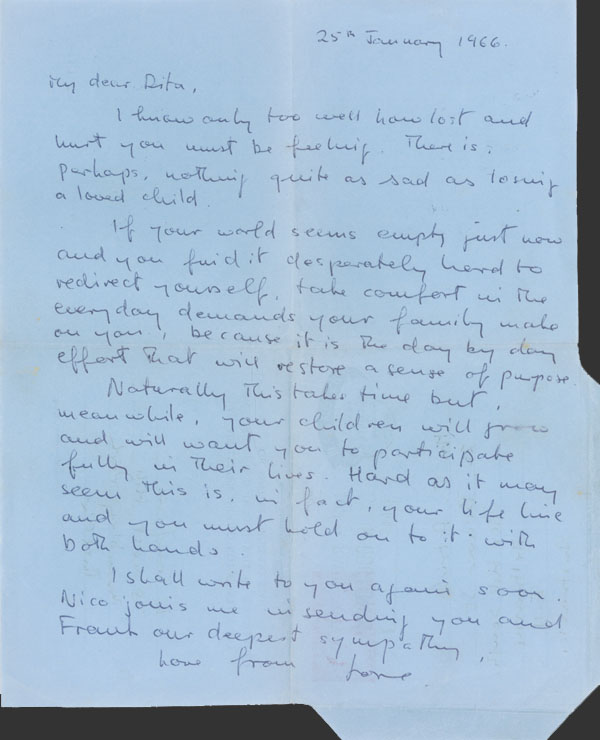 25th January 1966.
My dear Rita,
I know only too well how lost and
hurt you must be feeling. There is,
perhaps, nothing quite as sad as losing
a loved child.
If your world seems empty just now
and you find it desperately hard to
redirect yourself, take comfort in the
everyday demands your family make
on you, because it is the day by day
effort that will restore a sense of purpose.
Naturally this takes time but,
meanwhile, your children will grow
and will want you to participate
fully in their lives. Hard as it may
seem this is, in fact, your life line
and you must hold on to it with
both hands.
I shall write to you again soon.
Nico joins me in sending you and
Frank our deepest sympathy,
love from